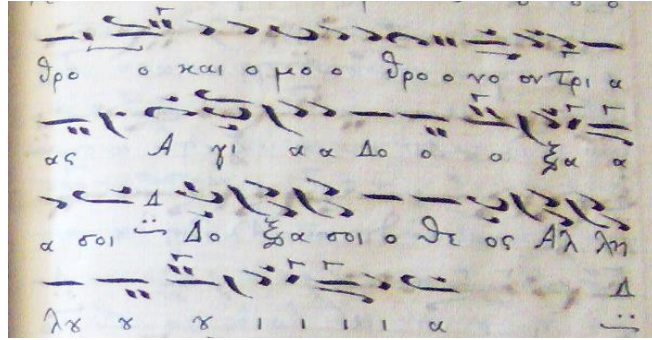 θρο ο και ο μο ο θρο ο νο ον τρι α
ας Α γι α α Δο ο ο ξα α
α σοι Δ Δο ξα σοι ο Θε ος Αλ λη
λȣ ȣ ȣ ι ι ι ι α Δ